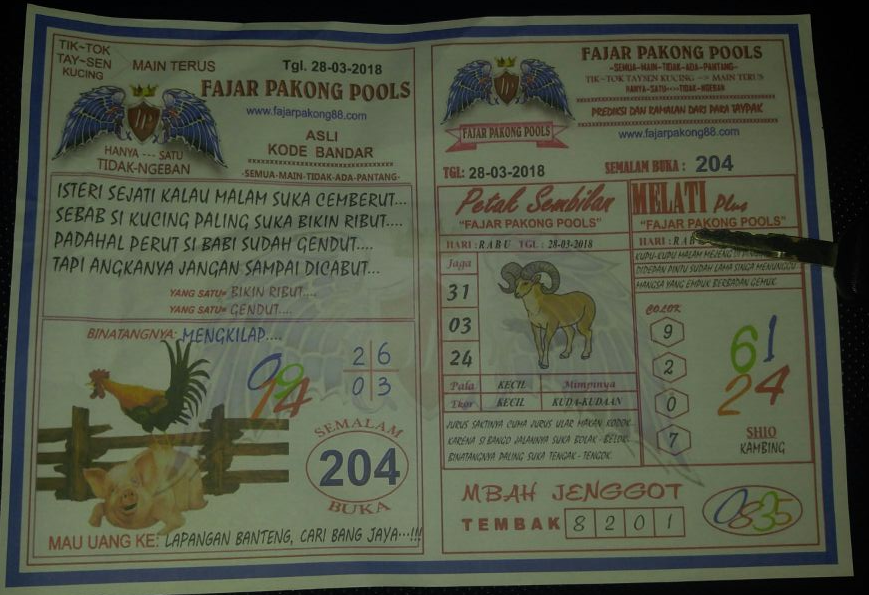 TIK-TOK
TAY-SEN
KUCING
MAIN TERUS
Tgl. 28-03-2018
FAJAR PAKONG POOLS
www.fajarpakong88.com
ASLI
KODE BANDAR
HANYA --- SATU
TIDAK-NGEBAN
-SEMUA-MAIN-TIDAK-ADA-PANTANG-
ISTERI SEJATI KALAU MALAM SUKA CEMBERUT...
SEBAB SI KUCING PALING SUKA BIKIN RIBUT....
PADAHAL PERUT SI BABI SUDAH GENDUT....
TAPI ANGKANYA JANGAN SAMPAI DICABUT...
YANG SATU= BIKIN RIBUT....
YANG SATU= GENDUT....
BINATANGNYA: MENGKILAP....
2 6
0 3
SEMALAM
204
BUKA
MAU UANG KE: LAPANGAN BANTENG, CARI BANG JAYA...!!!
FAJAR PAKONG POOLS
-SEMUA-MAIN-TIDAK-ADA-PANTANG-
TIK-TOK TAYSEN KUCING => MAIN TERUS
HANYA-SATU==>TIDAK-NGEBAN
PREDIKSI DAN RAMALAN DARI PARA TAYPAK
FAJAR PAKONG POOLS
www.fajarpakong88.com
TGL: 28-03-2018
SEMALAM BUKA : 204
Petak Sembilan
"FAJAR PAKONG POOLS"
HARI : RABU TGL : 28-03-2018
Jaga
31
03
24
Pala KECIL Mimpinya
Ekor KECIL KUDA-KUDAAN
JURUS SAKTINYA CUMA JURUS ULAR MAKAN KODOK..
KARENA SI BANGO JALANNYA SUKA BOLAK - BELOK..
BINATANGNYA PALING SUKA TENGAK - TENGOK.
MELATI Plus
"FAJAR PAKONG POOLS"
HARI : RAB
KUPU-KUPU MALAM MEJENG DI
DIDEPAN PINTU SUDAH LAMA SINGA MENUNGGU
MANGSA YANG EMPUK BERBADAN GEMUK.
COLOK
9
2
0
7
61
24
SHIO
KAMBING
MBAH JENGGOT
TEMBAK 8 2 0 1
0835